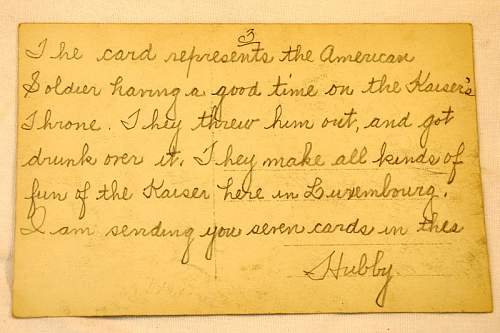 3
The card represents the American
Soldier having a good time on the Kaiser's
Throne. They threw him out, and got
drunk over it. They make all kinds of
fun of the Kaiser here in Luxembourg.
I am sending you seven cards in thes
Hubby.